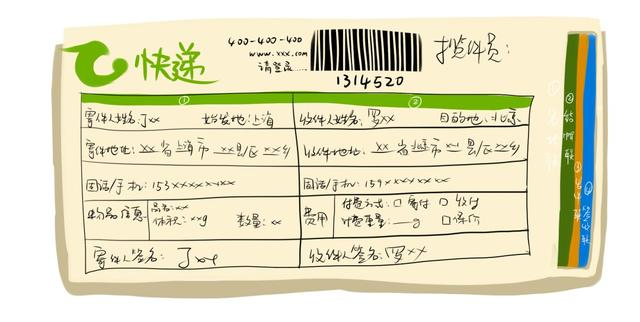 快递
400-400-400
www.xxx.com
请登录......
1314520
揽件员:
① ②
寄件人姓名:丁xx 始发地:上海 收件人姓名:罗xx 目的地:北京
寄件地址:xx省上海市xx县/区xx乡 收件地址:xx省北京市xx县/区xx乡
固话/手机:153xxxxxxxx 固话/手机:159xxxxxxxx
物品信息 品名:xx 体积:xxg 数量:xx 费用 付费方式:□寄付 □收付
计费重量:__g □保价
寄件人签名:丁xx 收件人签名:罗xx